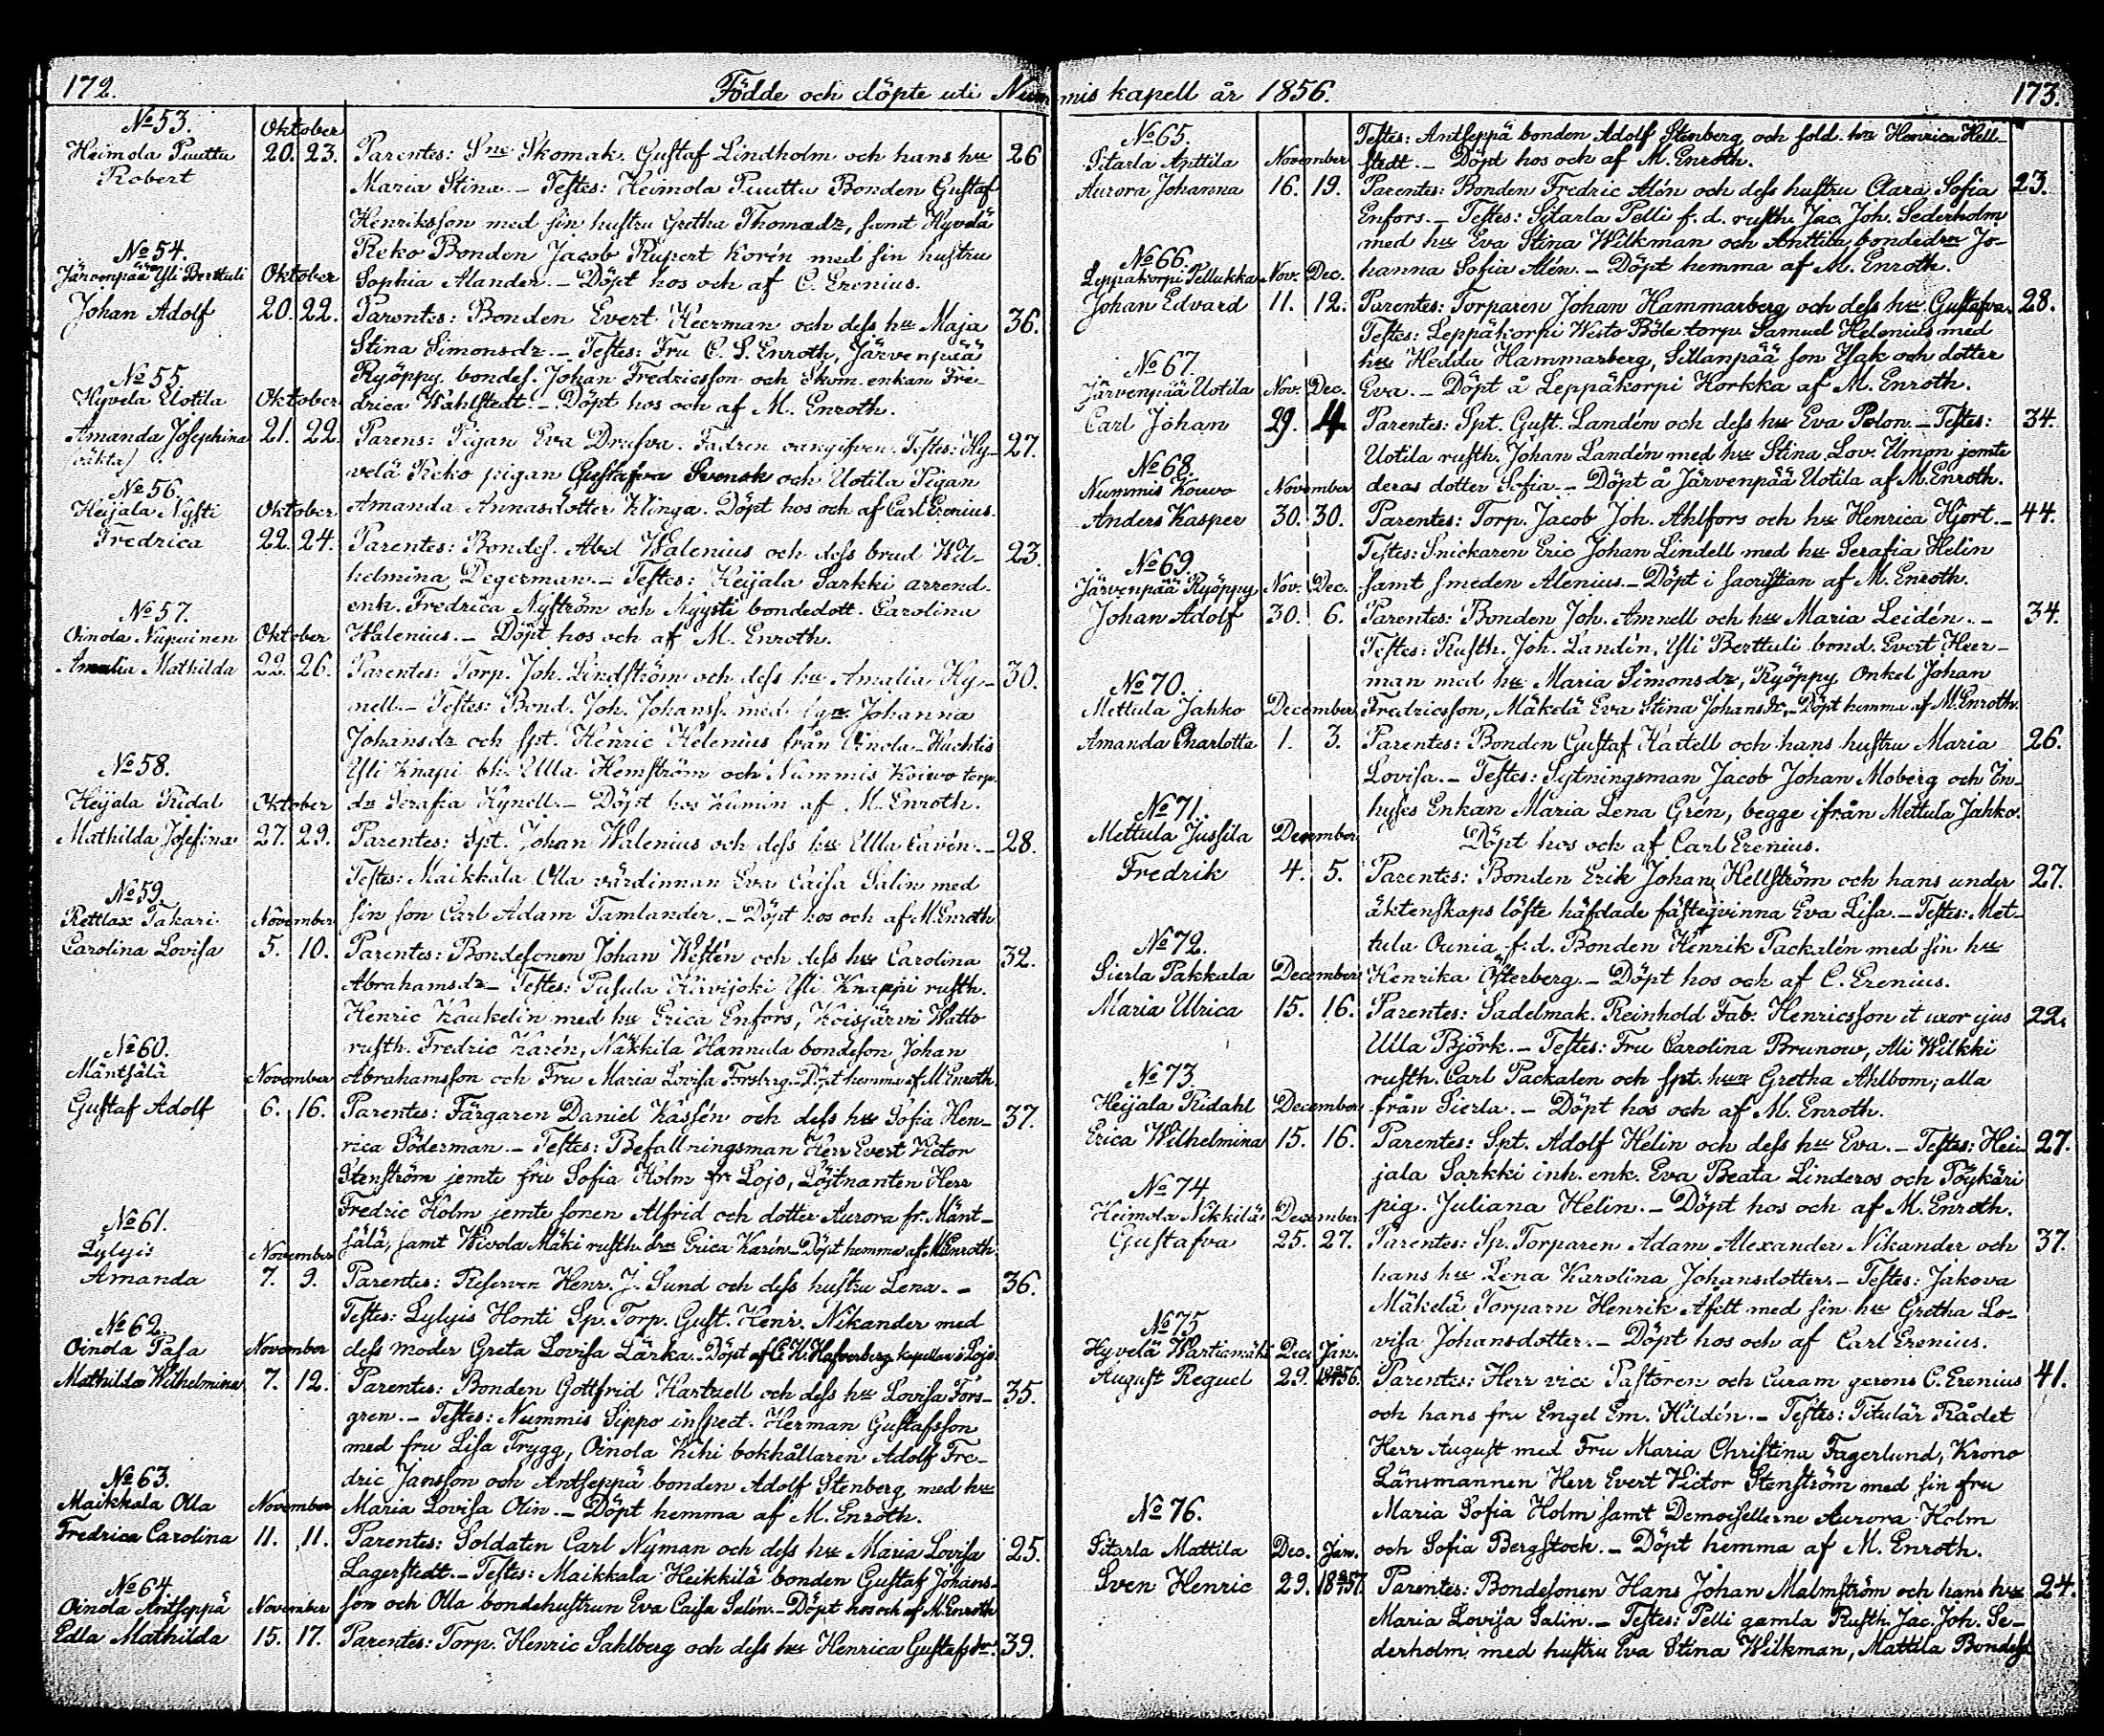 172.
Födde och döpte uti Num-
No 53.
Oktober
Heimola Puuttu 20. 23. Parentes: Sne Skomak. Gustaf Lindholm och hans hu 26
Robert
Maria Stina. – Testes: Heimola Puuttu Bonden Gustaf
Henriksson med sin hustru Gretha Thomædr, samt Hyvelä
No 54.
Reko Bonden Jacob Rupert Korén med sin hustru
Järvenpää Yli Berttuli Oktober Sophia Alander. – Döpt hos och af C. Erenius.
Johan Adolf 20. 22. Parentes: Bonden Evert Heerman och dess hu Maja 36.
Stina Simonsdr. – Testes: Fru C. S. Enroth, Järvenpää
No 55.
Ryöppy bondes. Johan Fredricsson och Skom. enkan Fre-
Hyvela Uotila Oktober drica Wahlstedt. – Döpt hos och af M. Enroth.
Amanda Josephina 21. 22. Parens: Pigan Eva Drufva. Fadren oangifven. Testes: Hy- 27.
(oäkta)
velä Reko pigan Gustafva Svensk och Uotila Pigan
No 56.
Heijala Nysti Oktober Amanda Annasdotter Klinga. Döpt hos och af Carl Erenius.
Fredrica 22. 24. Parentes: Bondes. Abel Walenius och dess brud Wil- 23.
helmina Degerman. – Testes: Heijala Sarkki arrend.
No 57.
enk. Fredrica Nyström och Nyysti bondedott. Carolina
Oinola Nupuinen Oktober Walenius. – Döpt hos och af M. Enroth.
Amalia Mathilda 22. 26. Parentes: Torp. Joh. Lindström och dess hu Amalia Ky- 30.
nell. – Testes: Bond. Joh. Johanss. med Johanna
Johansdr och spt. Henric Helenius från Oinola – Wuohtis
No 58.
Yli Knapi Ulla Hemström och Nummis Koivo torp.
Heijala Ridal Oktober dr Serafia Kynell. – Döpt hos Kumin af M. Enroth.
Mathilda Josefina 27. 29. Parentes: Spt. Johan Walenius och dess hu Ulla Cavén. – 28.
Testes: Maikkala Olla värdinnan Eva Caisa Salin med
No 59.
Rettlax Takari November sin son Carl Adam Tamlander. – Döpt hos och af M. Enroth
Carolina Lovisa 5. 10. Parentes: Bondesonen Johan Westén och dess hu Carolina 32.
Abrahamsdr – Testes: Pusula Hirvijoki Yli Knappi rusth.
Henric Kaukelin med hu Erica Enfors, Koisjärvi Watto
No 60.
rusth. Fredric Karén, Näkkila Hannula bondeson Johan
Mäntsälä November Abrahamsson och Fru Maria Lovisa Forsberg. – Döpt hemma af M. Enroth
Gustaf Adolf 6. 16. Parentes: Färgaren Daniel Kassén och dess hu Sofia Hen- 37.
rica Söderman. – Testes: Befallningsman Herr Evert Victor
Stenström jemte fru Sofia Holm fr Lojo, Löjtnanten Herr
Fredric Holm jemte sonen Alfrid och dotter Aurora fr. Mänt-
No 61.
Lylyis November sälä, samt Wivola Mäki rusth. dr Erica Karén. – Döpt hemma af M. Enroth.
Amanda 7. 9. Parentes: Reserven Henr. J. Sund och dess hustru Lena. – 36.
Testes: Lylyis Honti Sp. Torp. Gust. Henr. Nikander med
No 62.
Oinola Pasa November dess moder Greta Lovisa Lärka. – Döpt af C. H. Hafverberg kapellan i Lojo.
Mathilda Wilhelmina 7. 12. Parentes: Bonden Gottfrid Hartzell och dess hu Lovisa Fors- 35.
gren. – Testes: Nummis Sippo inspect. Herman Gustafsson
med fru Lisa Trygg, Oinola Kihi bokhållaren Adolf Fre-
No 63.
dric Jansson och Antseppä bonden Adolf Stenberg med hu
Maikkala Olla November Maria Lovisa Olin. – Döpt hemma af M. Enroth.
Fredrica Carolina 11. 11. Parentes: Soldaten Carl Nyman och dess hu Maria Lovisa 25.
Lagerstedt. – Testes: Maikkala Heikkilä bonden Gustaf Johans-
No 64.
Oinola Antseppä November son och Olla bondehustrun Eva Caisa Salén. – Döpt hos och af M. Enroth
Edla Mathilda 15. 17. Parentes: Torp. Henric Sahlberg och dess hu Henrica Gustafsdr. 39.
mis kapell år 1856.
173.
No 65.
Testes: Antseppä bonden Adolf Stenberg och sold. hu Henrica Hell-
Sitarla Anttila November stedt. – Döpt hos och af M. Enroth.
Aurora Johanna 16. 19. Parentes: Bonden Fredric Alén och dess hustru Clara Sofia 23.
Enfors. – Testes: Sitarla Pelli f. d. rusth. Jac. Joh. Sederholm
No 66.
med hu Eva Stina Wilkman och Anttila bondedr Jo-
Leppäkorpi Pellukka Nov. Dec. hanna Sofia Alén. – Döpt hemma af M. Enroth.
Johan Edvard 11. 12. Parentes: Torparen Johan Hammarberg och dess hu Gustafva. 28.
Testes: Leppäkorpi Westo Böle torp. Samuel Helenius med
No 67.
hu Hedda Hammarberg, Sillanpää son Isak och dotter
Järvenpää Uotila Nov. Dec. Eva. – Döpt å Leppäkorpi Korkka af M. Enroth.
Carl Johan 29. 4. Parentes: Spt. Gust. Landén och dess hu Eva Polon. – Testes: 34.
No 68.
Uotila rusth. Johan Landén med hu Stina Lov. Uman jemte
Nummis Kouvo November deras dotter Sofia. – Döpt å Järvenpää Uotila af M. Enroth.
Anders Kasper 30. 30. Parentes: Torp. Jacob Joh. Ahlfors och hu Henrica Hjort. – 44.
No 69.
Testes: Snickaren Eric Johan Lindell med hu Serafia Helin
Järvenpää Ryöppy Nov. Dec. samt smeden Alenius. – Döpt i sacristian af M. Enroth.
Johan Adolf 30. 6. Parentes: Bonden Joh. Amnell och hu Maria Leidén. – 34.
Testes: Rusth. Joh. Landén, Yli Berttuli bond. Evert Heer-
No 70.
man med hu Maria Simonsdr, Ryöppy Onkel Johan
Mettula Jahko December Fredricsson, Mäkelä Eva Stina Johansdr, – Döpt hemma af M. Enroth.
Amanda Charlotta 1. 3. Parentes: Bonden Gustaf Hartell och hans hustru Maria 26.
Lovisa. – Testes: Sytningsman Jacob Johan Moberg och In-
No 71.
hyses Enkan Maria Lena Grén, begge ifrån Mettula Jahko.
Mettula Jussila December Döpt hos och af Carl Erenius.
Fredrik 4. 5. Parentes: Bonden Erik Johan Hellström och hans under 27.
äktenskaps löfte häfdade fästeqvinna Eva Lisa. – Testes: Met-
No 72.
tula Ounia f. d. Bonden Henrik Packalén med sin hu
Sierla Pakkala December Henrika Österberg. – Döpt hos och af C. Erenius.
Maria Ulrica 15. 16. Parentes: Sadelmak. Reinhold Fab. Henricsson et uxor ejus 22.
Ulla Björk. – Testes: Fru Carolina Brunow, Ali Wilkki
No 73.
rusth. Carl Packalen och spt. hun Gretha Ahlbom, alla
Heijala Ridahl December från Sierla. – Döpt hos och af M. Enroth.
Erica Wilhelmina 15. 16. Parentes: Spt. Adolf Helin och dess hu Eva. – Testes: Hei- 27.
jala Sarkki inh. enk. Eva Beata Linderos och Pöykäri
No 74
pig. Juliana Helin. – Döpt hos och af M. Enroth.
Heimola Nikkilä December
Gustafva 25. 27. Parentes: Sp. Torparen Adam Alexander Nikander och 37.
hans hu Lena Karolina Johansdotter. – Testes: Jakova
Mäkelä Torparn Henrik Afelt med sin hu Gretha Lo-
No 75
visa Johansdotter. – Döpt hos och af Carl Erenius.
Hyvelä Wartiamäki Dec. Jan.
August Reguel 29. 1856. Parentes: Herr vice Pastoren och Curam gerens C. Erenius 41.
och hans fru Engel Em. Hildén. – Testes: Titulär Rådet
Herr August med Fru Maria Christina Fagerlund, Krono
Länsmannen Herr Evert Victor Stenström med sin fru
No 76.
Maria Sofia Holm samt Demoisellerne Aurora Holm
Sitarla Mattila Dec. Jan. och Sofia Bergstock. – Döpt hemma af M. Enroth.
Sven Henric 29. 1857. Parentes: Bondesonen Hans Johan Malmström och hans hu 24.
Maria Lovisa Salin. – Testes: Pelli gamla Rusth. Jac. Joh. Se-
derholm med hustru Eva Stina Wilkman, Mattila Bondes.